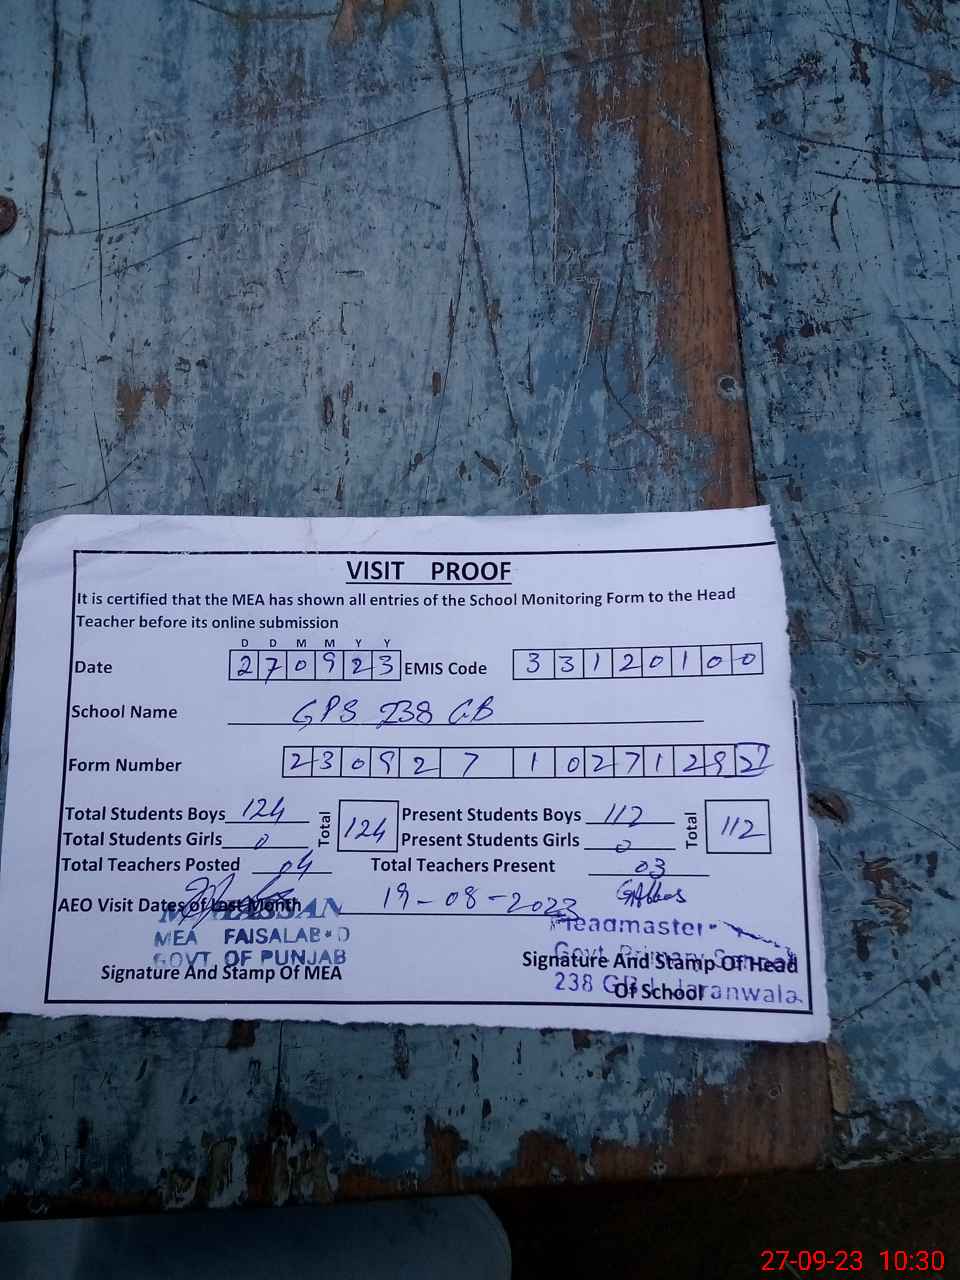 VISIT PROOF
It is certified that the MEA has shown all entries of the School Monitoring Form to the Head
Teacher before its online submission
D D M M Y Y
Date 270923 EMIS Code 33120100
School Name GPS 238 GB
Form Number 23092710271292
Total Students Boys 124 Total 124 Present Students Boys 112 Total 112
Total Students Girls 0 Present Students Girls 0
Total Teachers Posted 04 Total Teachers Present 03
AEO Visit Dates of Last Month 19-08-2023
MEA FAISALABAD
GOVT. OF PUNJAB
Signature And Stamp Of MEA
Headmaster
Govt. Primary School
Signature And Stamp Of Head
Of School
238 GB Jaranwala
27-09-23 10:30